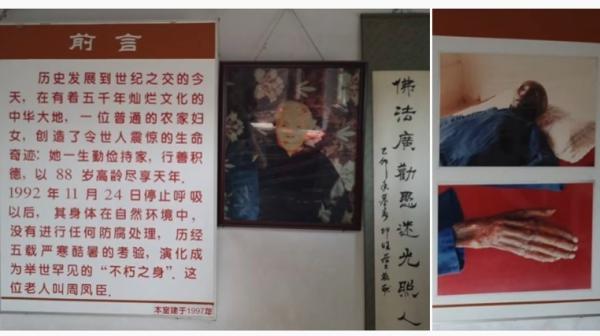 前言
历史发展到世纪之交的今
天,在有着五千年灿烂文化的
中华大地,一位普通的农家妇
女,创造了令世人震惊的生命
奇迹:她一生勤俭持家,行善积
德,以 88 岁高龄尽享天年.
1992 年 11 月 24 日停止呼吸
以后,其身体在自然环境中,
没有进行任何防腐处理,历经
五载严寒酷暑的考验,演化成
为举世罕见的“不朽之身”.这
位老人叫周凤臣.
本室建于1997年
佛法广劝愚迷光照人